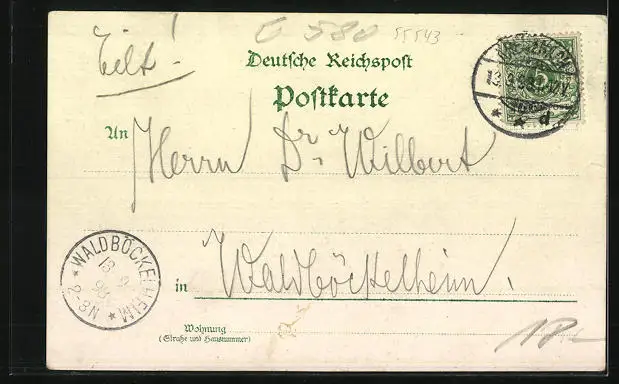 E 580 55543
Eilt!
Deutsche Reichspost
Postkarte
An Herrn Dr. Wilbert
in Waldböckelheim.
WALDBÖCKELHEIM
13 9
98
2-8N
Wohnung
(Straße und Hausnummer)